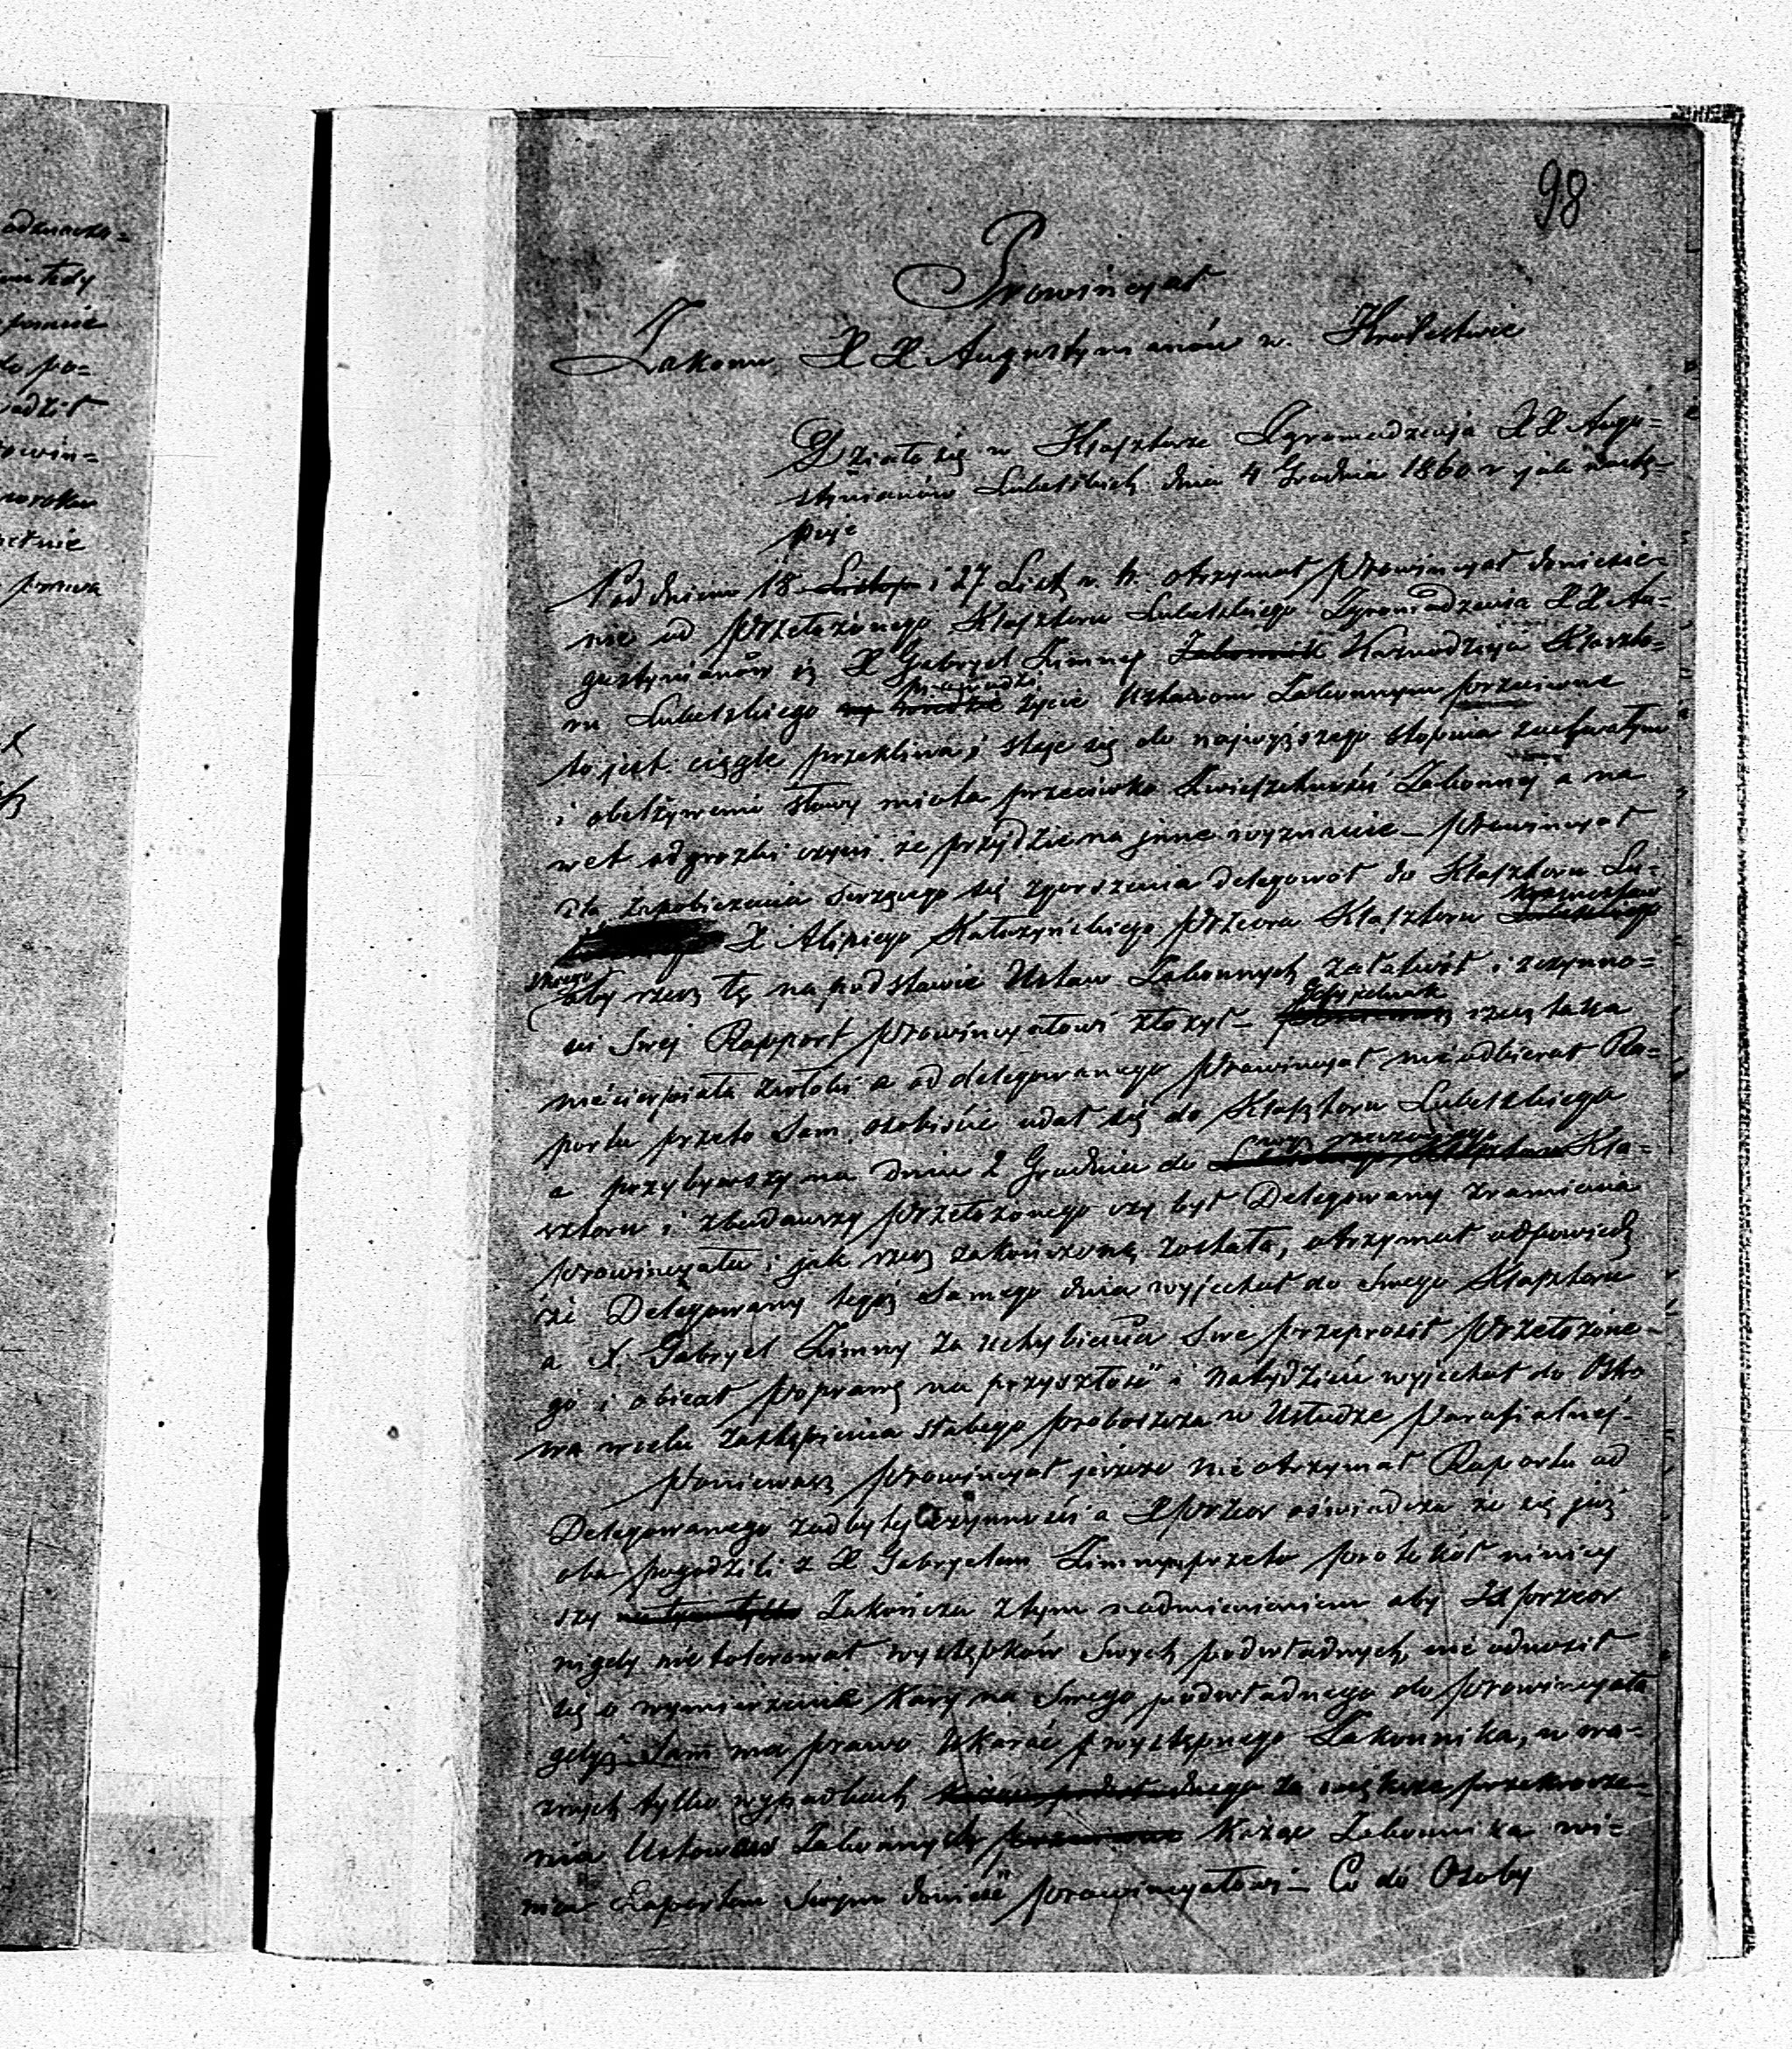 98
Prowincyał
Zakonu XX Augustynianów w Królestwie
Działo się w Klasztorze Zgromadzenia XX Augu=
stynianów Lubelskich dnia 4 Grudnia 1860 r jak nastę=
puje
Pod dniem 18 Listop i 27 List r. b. otrzymał Prowincyał doniesie=
nie od Przełożonego Klasztoru Lubelskiego Zgromadzenia XX Au=
gustynianów iż X Gabryel Zimny Zakonnik Kaznodzieja Klaszto=
ru Lubelskiego prowadzi życie Ustawom Zakonnym przeciwne
to jest: ciągle przeklina i staje się do najwyższego stopnia zuchwałym
i obelżywemi słowy miota przeciwko Zwierzchności Zakonnej a na
wet odgrozki czyni że przejdzie na inne wyznanie – Prowincyał
dla zapobieżenia szerzącego się zgorszenia delegował do Klasztoru Lu=
X Alipiego Kałuzyńskiego Przeora Klasztoru
aby rzecz tę na podstawie Ustaw Zakonnych załatwił i z czynno=
ści Swej Rapport Prowincyałowi złożył – Gdy jednak rzecz taka
niecierpiała zwłoki a od delegowanego Prowincyał nieodbierał Ra=
portu przeto Sam osobiście udał się do Klasztoru Lubelskiego
a przybywszy na dniu 2 Grudnia do Kla=
sztoru i zbadawszy Przełożonego czy był Delegowany z ramienia
Prowincyała i jak rzecz zakończoną została, otrzymał odpowiedź
iże Delegowany tegoż Samego dnia wyjechał do Swego Klasztoru
a X. Gabryel Zimny za uchybienia Swe przeprosił Przełożone=
go i obiecał poprawę na przyszłość i na tydzień wyjechał do Ostro
wa w celu zastąpienia słabego proboszcza w Usłudze Parafialnej.
Ponieważ Prowincyał jeszcze nie otrzymał Raportu od
Delegowanego z odbytej Czynności a X Przeor oświadcza że się już
oba pogodzili z X Gabryelem Zimnym przeto protokół niniej
szy na tym tylko Zakończa z tym nadmienieniem aby X Przeor
nigdy nie tolerował występków Swych podwładnych, nie odnosił
się o wymierzenie Kary na Swego podwładnego do Prowincyała
gdyż Sam ma prawo Ukarać występnego Zakonnika, w wa=
żnych tylko wypadkach za większe przekrocze=
nia Ustaw Zakonnych Każąc Zakonnika wi=
nien Raportem Swym donieść Prowincyałowi – Co do Osoby